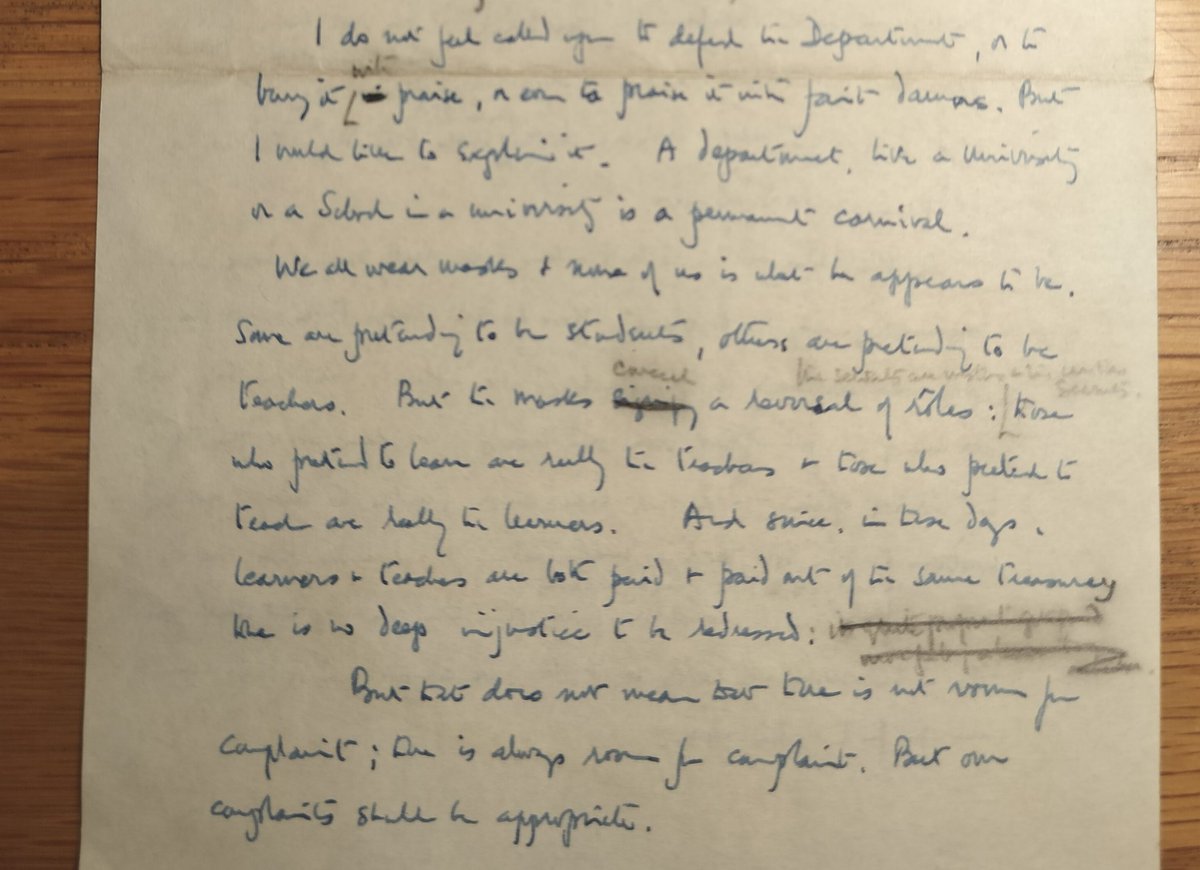 I do not feel called upon to defend the Department, or to
with
bury it in praise, or even to praise it with faint damns. But
I would like to explain it. A department, like a University
or a School in a university is a permanent carnival.
We all wear masks & none of us is what he appears to be.
Some are pretending to be students, others are pretending to be
conceal the servants are masters & the masters servants.
teachers. But the masks signify a reversal of rôles: those
who pretend to learn are really the teachers & those who pretend to
teach are really the learners. And since, in these days,
learners & teachers are both paid & paid out of the same treasury
there is no deep injustice to be redressed:
But that does not mean that there is not room for
complaint; there is always room for complaint. But our
complaints shall be appropriate.